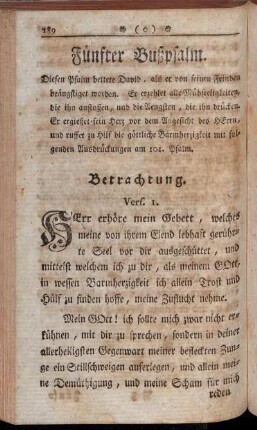 180 * ( o ) *
Fünfter Bußpsalm.
Diesen Psalm bettete David, als er von seinen Feinden
beängstiget worden. Er erzehlet alle Mühseeligkeiten,
die ihn anstossen, und die Aengsten, die ihn drücken.
Er ergiesset sein Herz vor dem Angesicht des HErrn,
und ruffet zu Hilf die göttliche Barmherzigkeit mit fol-
genden Ausdrückungen am 101. Psalm.
Betrachtung.
Vers. 1.
HErr erhöre mein Gebett, welches
meine von ihrem Elend lebhaft gerühr-
te Seel vor dir ausgeschüttet, und
mittelst welchem ich zu dir, als meinem GOtt,
in wessen Barmherzigkeit ich allein Trost und
Hülf zu finden hoffe, meine Zuflucht nehme.
Mein GOtt! ich sollte mich zwar nicht er-
kühnen, mit dir zu sprechen, sondern in deiner
allerheiligsten Gegenwart meiner befleckten Zun-
ge ein Stillschweigen auferlegen, und allein mei-
ne Demüthigung, und meine Scham für mich
reden